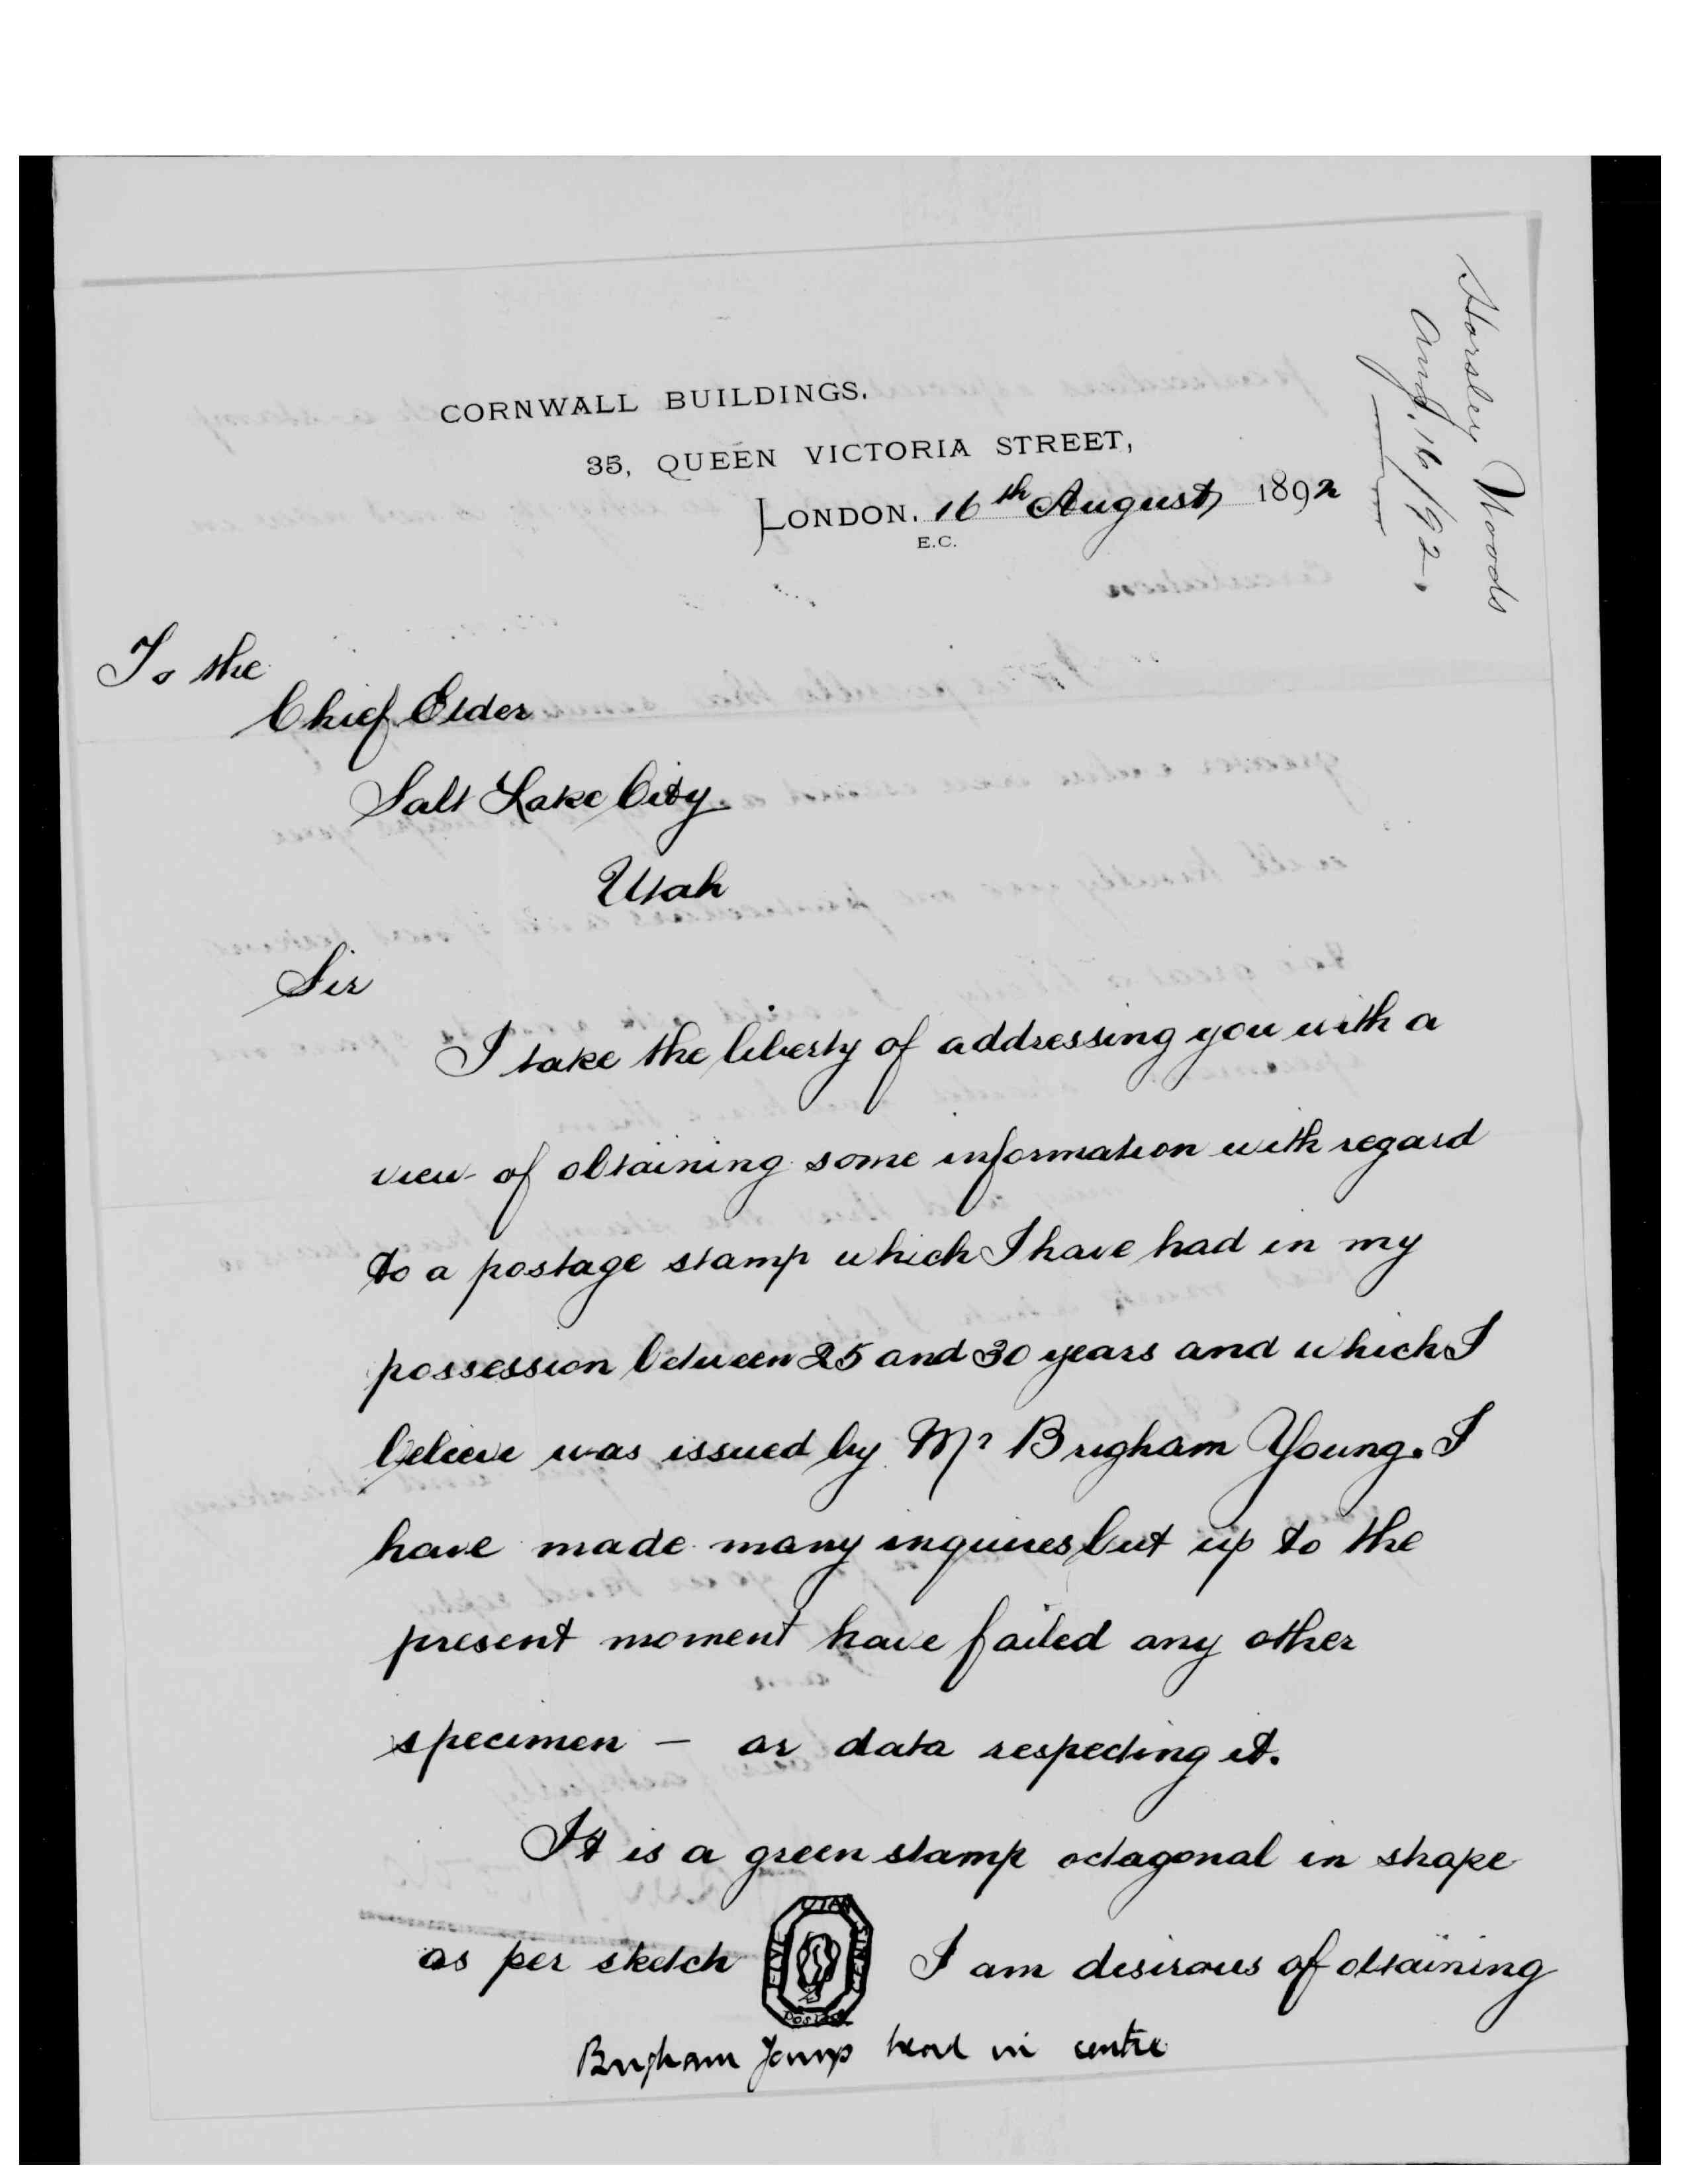 Horsley Woods
Aug. 16/92.
CORNWALL BUILDINGS.
35, QUEEN VICTORIA STREET,
LONDON. 16th August 1892
E.C.
To the
Chief Elder
Salt Lake City
Utah
Sir
I take the liberty of addressing you with a
view of obtaining some information with regard
to a postage stamp which I have had in my
possession between 25 and 30 years and which I
believe was issued by Mr Brigham Young. I
have made many inquires but up to the
present moment have failed any other
specimen — or data respecting it.
It is a green stamp octagonal in shape
as per sketch UTAH FIVE CENTS POSTAGE I am desirous of obtaining
Brigham Youngs head in centre